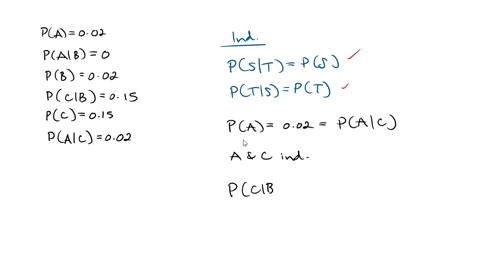 P(A)=0.02
P(A|B)=0
P(B)=0.02
P(C|B)=0.15
P(C)=0.15
P(A|C)=0.02
Ind.
P(S|T)=P(S) ✓
P(T|S)=P(T) ✓
P(A)=0.02=P(A|C)
A & C ind.
P(C|B